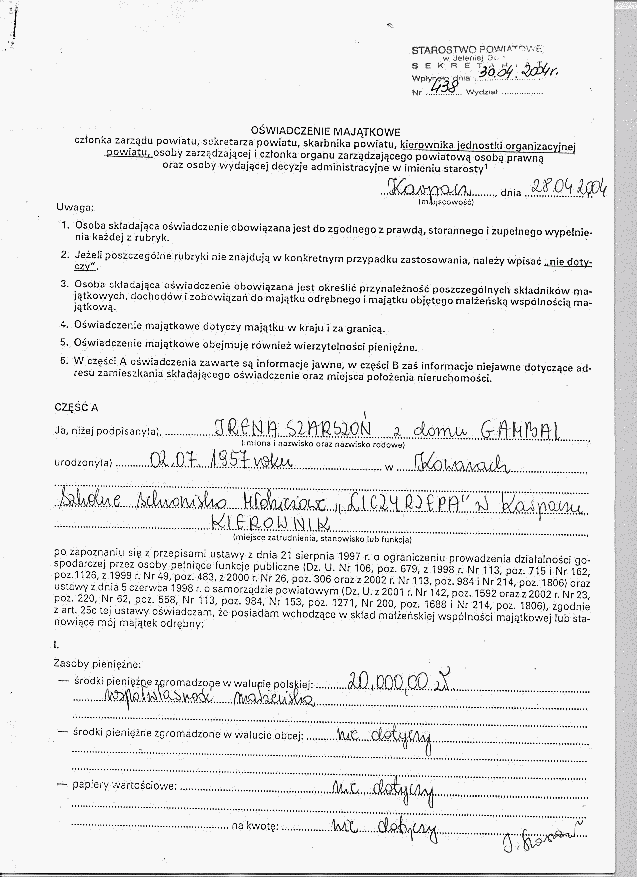 STAROSTWO POWIATOWE
w Jeleniej Górze
S E K R E T A R I A T
Wpłynęło dnia 30.04.2004r.
Nr 438 Wydział ..................
OŚWIADCZENIE MAJĄTKOWE
członka zarządu powiatu, sekretarza powiatu, skarbnika powiatu, kierownika jednostki organizacyjnej
powiatu, osoby zarządzającej i członka organu zarządzającego powiatową osobą prawną
oraz osoby wydającej decyzje administracyjne w imieniu starosty1
Karpacz, dnia 28.04.2004
(miejscowość)
Uwaga:
1. Osoba składająca oświadczenie obowiązana jest do zgodnego z prawdą, starannego i zupełnego wypełnie-
nia każdej z rubryk.
2. Jeżeli poszczególne rubryki nie znajdują w konkretnym przypadku zastosowania, należy wpisać „nie doty-
czy".
3. Osoba składająca oświadczenie obowiązana jest określić przynależność poszczególnych składników ma-
jątkowych, dochodów i zobowiązań do majątku odrębnego i majątku objętego małżeńską wspólnością ma-
jątkową.
4. Oświadczenie majątkowe dotyczy majątku w kraju i za granicą.
5. Oświadczenie majątkowe obejmuje również wierzytelności pieniężne.
6. W części A oświadczenia zawarte są informacje jawne, w części B zaś informacje niejawne dotyczące ad-
resu zamieszkania składającego oświadczenie oraz miejsca położenia nieruchomości.
CZĘŚĆ A
Ja, niżej podpisany(a), IRENA SZARSZOŃ z domu GAMBAL
(imiona i nazwisko oraz nazwisko rodowe)
urodzony(a) 02.07.1957 roku w Kowarach
Szkolne Schronisko Młodzieżowe „LICZYRZEPA" w Karpaczu
KIEROWNIK
(miejsce zatrudnienia, stanowisko lub funkcja)
po zapoznaniu się z przepisami ustawy z dnia 21 sierpnia 1997 r. o ograniczeniu prowadzenia działalności go-
spodarczej przez osoby pełniące funkcje publiczne (Dz. U. Nr 106, poz. 679, z 1998 r. Nr 113, poz. 715 i Nr 162,
poz. 1126, z 1999 r. Nr 49, poz. 483, z 2000 r. Nr 26, poz. 306 oraz z 2002 r. Nr 113, poz. 984 i Nr 214, poz. 1806) oraz
ustawy z dnia 5 czerwca 1998 r. o samorządzie powiatowym (Dz. U. z 2001 r. Nr 142, poz. 1592 oraz z 2002 r. Nr 23,
poz. 220, Nr 62, poz. 558, Nr 113, poz. 984, Nr 153, poz. 1271, Nr 200, poz. 1688 i Nr 214, poz. 1806), zgodnie
z art. 25c tej ustawy oświadczam, że posiadam wchodzące w skład małżeńskiej wspólności majątkowej lub sta-
nowiące mój majątek odrębny:
I.
Zasoby pieniężne:
— środki pieniężne zgromadzone w walucie polskiej: 20.000,00 zł
współwłasność małżeńska
— środki pieniężne zgromadzone w walucie obcej: nie dotyczy
— papiery wartościowe: nie dotyczy
na kwotę: nie dotyczy